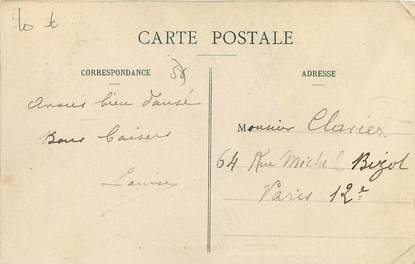 CARTE POSTALE
CORRESPONDANCE
ADRESSE
avons bien dansé
Bons Baisers
Louise
Monsieur Clavier
64 Rue Michel Bizot
Paris 12e